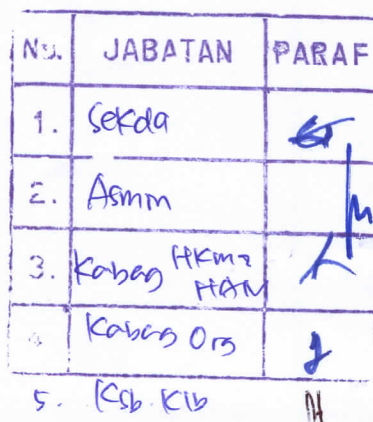 No. JABATAN PARAF
1. Sekda
2. Asmin
3. Kabag HKm2 HAM
4. Kabag Org
5. Ksb. Klb